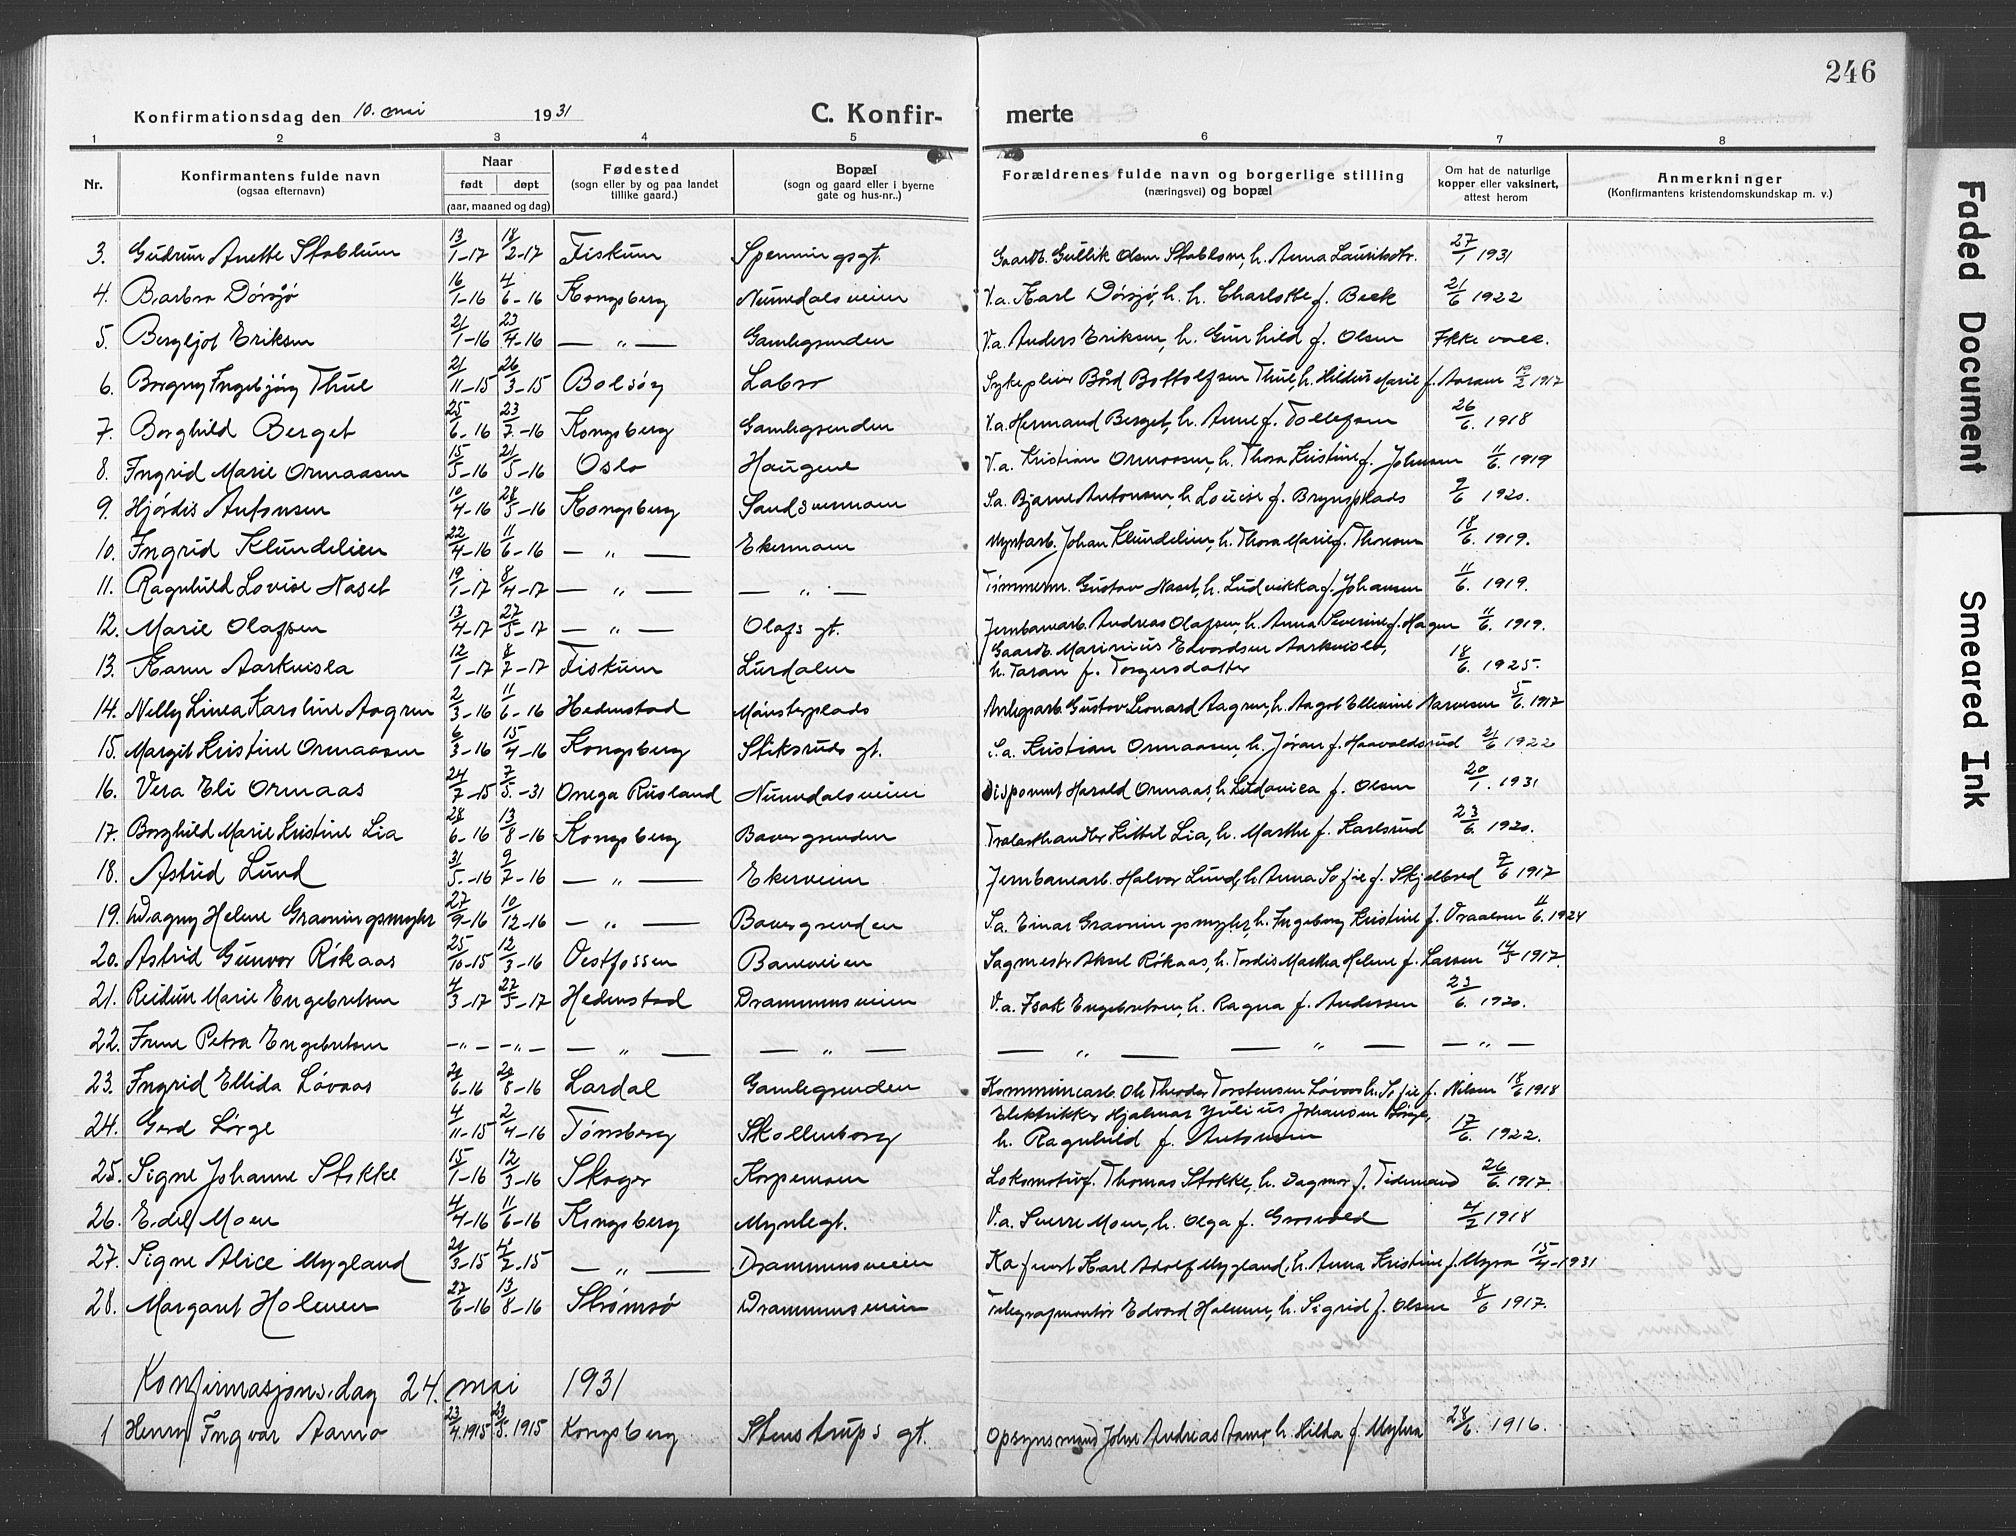 246
Konfirmationsdag den 10. mai 1931 C. Konfirmerte
1 2 3 4 5 6 7 8
Nr. Konfirmantens fulde navn (ogsaa efternavn) Naar født døpt (aar, maaned og dag) Fødested (sogn eller by og paa landet tillike gaard.) Bopæl (sogn og gaard eller i byerne gate og hus-nr.) Forældrenes fulde navn og borgerlige stilling (næringsvei) og bopæl Om hat de naturlige kopper eller vaksinert, attest herom Anmerkninger (Konfirmantens kristendomskundskap m. v.)
3. Gudrun Anette Stablum 13/1-17 18/2-17 Fiskum Spenningsgt. Gaardb. Gullik Olsen Stablom, h. Anna Lauritsdtr. 27/1 1931
4. Barbro Dørsjø 16/1-16 4/6-16 Kongsberg Numedalsveien V.a. Karl Dørsjø, h. h. Charlotte f. Beck 21/6 1922
5. Bergljot Eriksen 21/1-16 23/4-16 — „ — Gamlegrenden V.a. Anders Eriksen, h. Gunhild f. Olsen Ikke vacc.
6. Borgny Ingebjørg Thue 21/11-15 26/3-15 Bolsøy Labro Sykepleier Bård Bottolfsen Thue, h. Hildur Marie f. Aarsen 1917
7. Borghild Berget 25/6-16 23/7-16 Kongsberg Gamlegrenden V.a. Hermand Berget, h. Anne f. Tollefsen 26/6 1918
8. Ingrid Marie Ormaasen 15/5-16 21/5-16 Oslo Haugene V.a. Kristian Ormaasen, h. Thora Kristine f. Johnsen 11/6. 1919
9. Hjørdis Antonsen 10/4-16 28/5-16 Kongsberg Sandsvermoen S.a. Bjarne Antonsen, h. Louise f. Brynsplads 9/6 1920.
10. Ingrid Klundelien 22/4-16 11/6-16 — „ — Ekermoen Myntarb. Johan Klundelien, h. Thora Marie f. Thoresen 18/6. 1919.
11. Ragnhild Lovise Naset 19/1-17 8/4-17 — „ — — „ — Tømmerm. Gustav Naset, h. Ludvikka f. Johansen 11/6. 1919.
12. Marie Olafsen 13/4-17 27/5-17 — „ — Olafs gt. Jernbanearb. Andreas Olafsen, h. Anna Severine f. Hagen 11/6. 1919.
13. Karen Aarkvisla 12/1-17 8/7-17 Fiskum Lurdalen Gaardb. Marinius Edvardsen Aarkvisla,
h. Taran f. Torgersdatter 18/6. 1925.
14. Nelly Linea Karoline Aagren 2/3-16 11/6-16 Hedenstad Mønsterplads Anlegsarb. Gustov Leonard Aagren, h. Aagot Ellevine Narvesen 5/6. 1917
15. Margit Kristine Ormaasen 6/3-16 15/4-16 Kongsberg Stiksruds gt. S.a. Kristian Ormaasen, h. Jøran f. Haavaldsrud 21/6 1922
16. Vera Eli Ormaas 24/7-15 7/5-31 Onega Rusland Numedalsveien Disponent Harald Ormaas, h. Ludovica f. Olsen 20/1. 1931
17. Borghild Marie Kristine Lia 28/6-16 13/8-16 Kongsberg Bævergrenden Trælasthandler Kittel Lia, h. Marthe f. Karlsrud 23/6. 1920.
18. Astrid Lund 31/5-16 9/7-16 — „ — Ekerveien Jernbanearb. Halvor Lund, h. Anna Sofie f. Skjelbred 7/6 1917
19. Dagny Helene Gravningsmyhr 27/9-16 10/12-16 — „ — Bævergrenden S.a. Einar Gravningsmyhr, h. Ingeborg Kristine f. Vraalsen 11/6. 1924
20. Astrid Gunvor Råkaas 25/10-15 12/3-16 Vestfossen Baneveien Sagmester Aksel Råkaas, h. Tordis Martha Helene f. Larsen 14/5 1917.
21. Reidun Marie Engebretsen 4/3-17 27/5-17 Hedenstad Drammensveien V.a. Isak Engebretsen, h. Ragna f. Andersen 23/6. 1920.
22. Irene Petra Engebretsen -„- -„- — „ — — „ — — „ — — „ — — „ —
23. Ingrid Ellida Løvaas 24/6-16 20/8-16 Lardal Gamlegrenden Kommunearb. Ole Theodor Torstensen Løvaas h. Sofie f. Nilsen 18/6 1918
24. Gerd Lørge 4/11-15 2/4-16 Tønsberg Skollenborg Elektrikker Hjalmar Julius Johansen Lørge,
h. Ragnhild f. Antonsen 17/6. 1922.
25. Signe Johanne Stokke 15/1-16 12/3-16 Skoger Korpemoen Lokomotivf. Thomas Stokke, h. Dagmar f. Tidemand 26/6. 1917.
26. Edel Moen 4/4-16 11/6-16 Kongsberg Myntegt. V.a. Sverre Moen, h. Olga f. Grosvold 4/2 1918
27. Signe Alice Mygland 20/3-15 2-15 — „ — Drammensveien Kafevert Karl Adolf Mygland, h. Anna Kristine f. Myra 15/4-1931
28. Margaret Holmen 27/6-16 13/8-16 Strømsø Drammensveien Telegrafmontør Edvard Holmen, h. Sigrid f. Olsen 8/6 1917.
Konfirmasjonsdag 24. mai 1931
1 Henry Ingvar Aamo 23/4.1915 23/5.1915 Kongsberg Stenstrups gt. Opsynsmand Johan Andreas Aamo, h. Hilda f. Myhra 28/6. 1916.
Faded Document
Smeared Ink